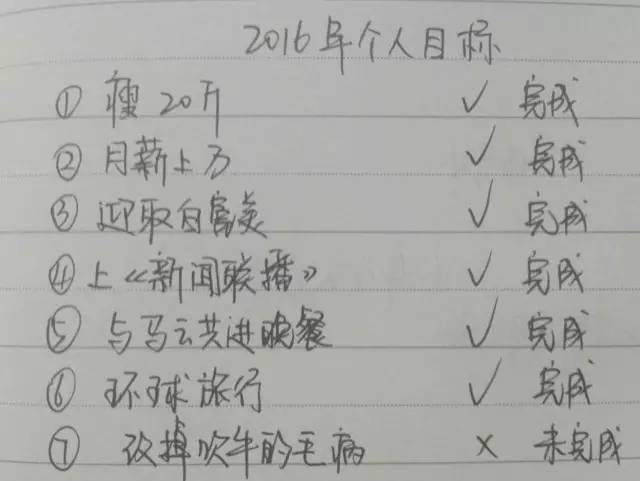 2016年个人目标
① 瘦20斤 ✓ 完成
② 月薪上万 ✓ 完成
③ 迎取白富美 ✓ 完成
④ 上《新闻联播》 ✓ 完成
⑤ 与马云共进晚餐 ✓ 完成
⑥ 环球旅行 ✓ 完成
⑦ 改掉吹牛的毛病 × 未完成